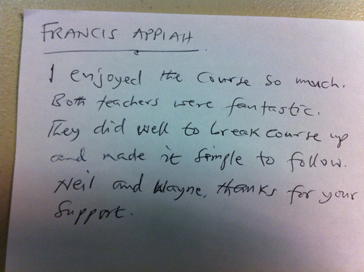 FRANCIS APPIAH
I enjoyed the course so much.
Both teachers were fantastic.
They did well to break course up
and made it simple to follow.
Neil and Wayne, thanks for your
support.